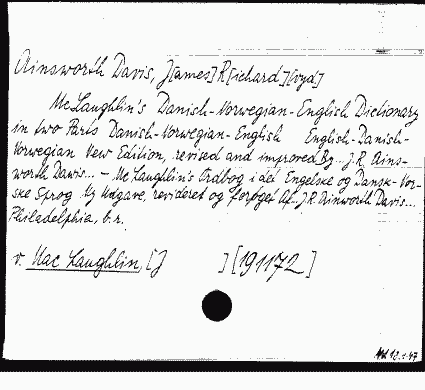 Ainsworth Davis, J[ames] R[ichard] [oyd]
McLaughlin's Danish-Norwegian-English Dictionary
in two Parts Danish-Norwegian-English English-Danish-
Norwegian New Edition, revised and improved By J.R. Ains-
worth Davis... – McLaughlin's Ordbog i det Engelske og Dansk-Nor-
ske Sprog Ny Udgave, revideret og forøget Af J.R. Ainworth Davis...
Philadelphia, b.r.
v. Mac Laughlin, [J ] [191172]